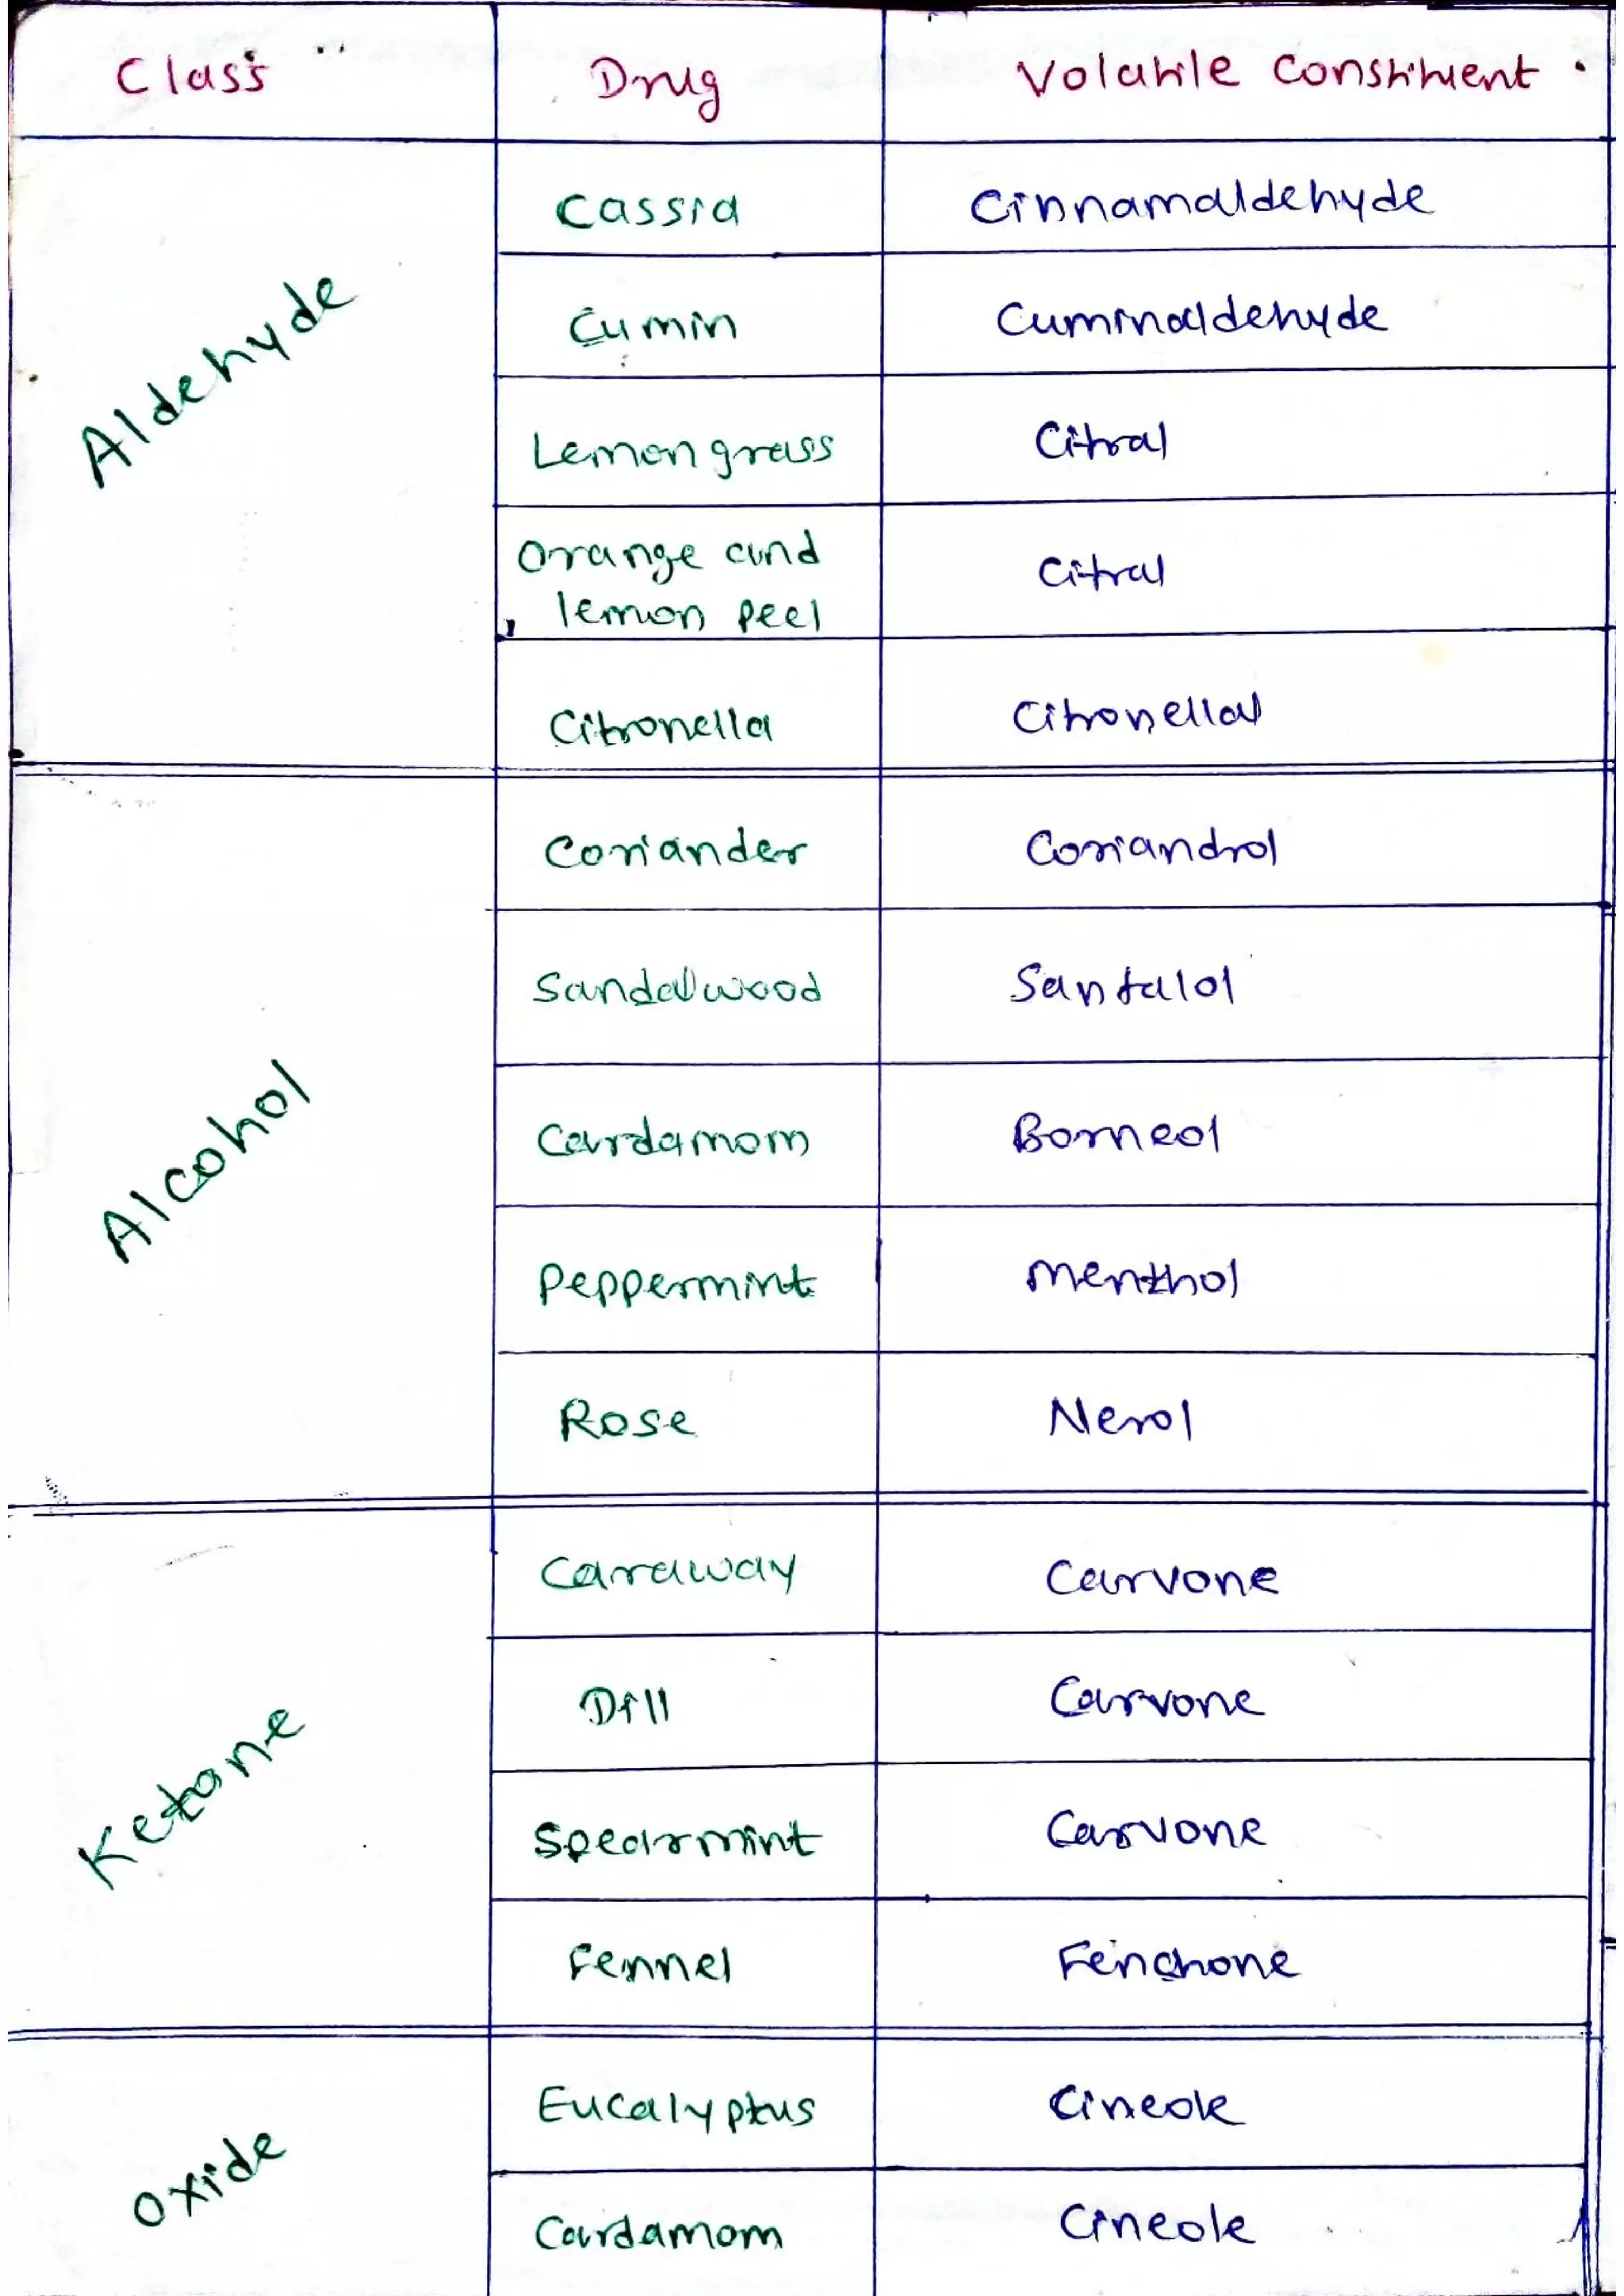 Class Drug Volatile Constituent
Aldehyde
Cassia Cinnamaldehyde
Cumin Cuminaldehyde
Lemon grass Citral
Orange and lemon peel Citral
Citronella Citronellal
Alcohol
Coriander Coriandrol
Sandalwood Santalol
Cardamom Borneol
Peppermint Menthol
Rose Nerol
Ketone
Caraway Carvone
Dill Carvone
Spearmint Carvone
Fennel Fenchone
Oxide
Eucalyptus Cineole
Cardamom Cineole